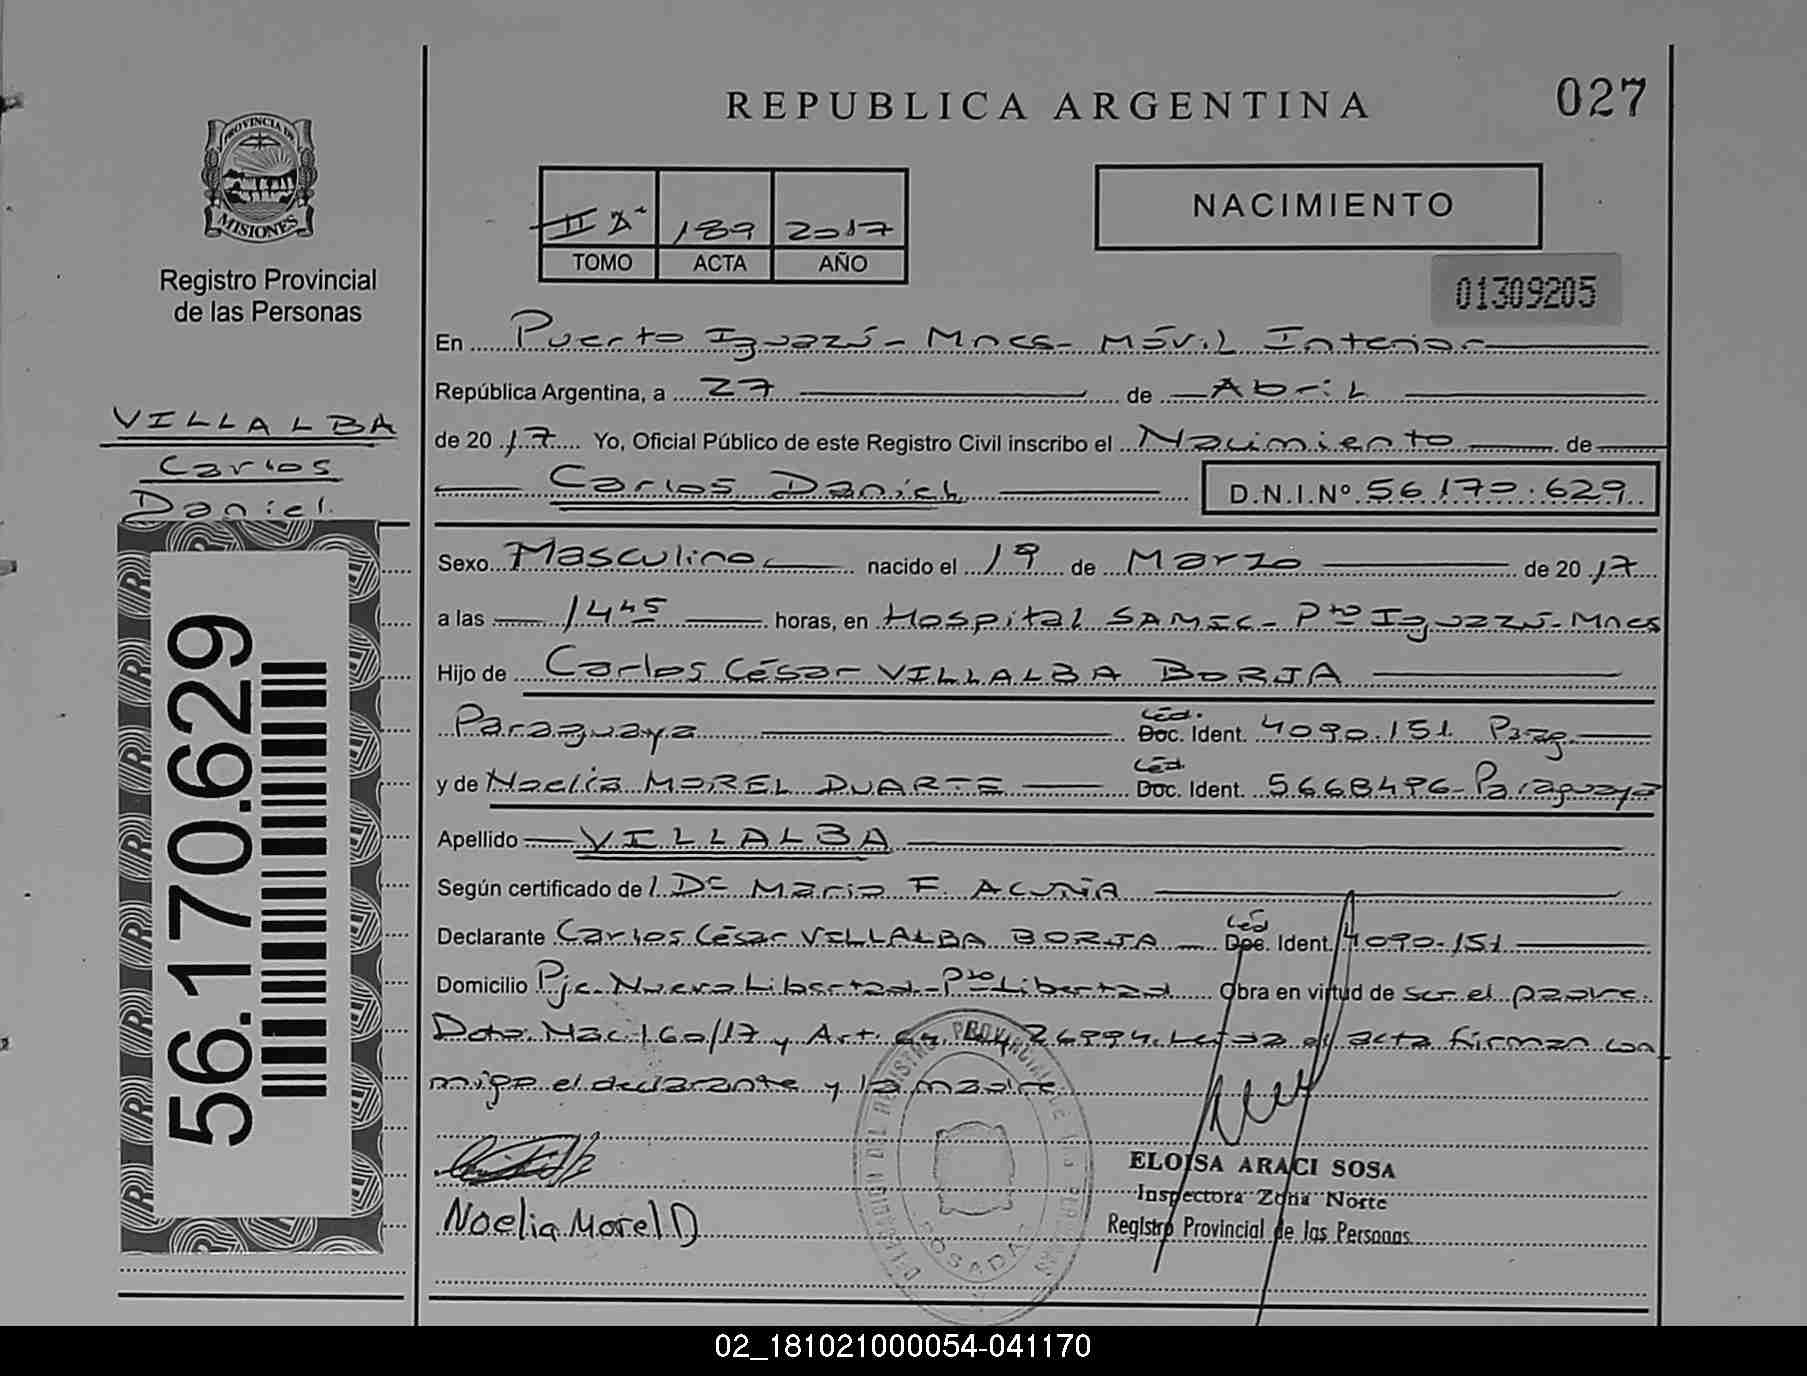 REPUBLICA ARGENTINA
027
PROVINCIA DE
MISIONES
Registro Provincial
de las Personas
TOMO ACTA AÑO
II 189 2017
NACIMIENTO
01309205
VILLALBA
Carlos
Daniel
56.170.629
En Puerto Iguazú - Mnes - Móvil Interior
República Argentina, a 27 de Abril
de 2017 Yo, Oficial Público de este Registro Civil inscribo el Nacimiento de
Carlos Daniel D.N.I.Nº 56.170.629
Sexo Masculino nacido el 19 de Marzo de 2017
a las 14 45 horas, en Hospital SAMIC - Pto Iguazú - Mnes
Hijo de Carlos César VILLALBA BORJA
Paraguaya Céd. Doc. Ident. 4090.151 Parag.
y de Noelia MOREL DUARTE Céd. Doc. Ident. 5668496 - Paraguaya
Apellido VILLALBA
Según certificado de l. Dra Maria F. ACUÑA
Declarante Carlos César VILLALBA BORJA Céd Doc. Ident. 4090.151
Domicilio Pje. Nueva Libertad - Pto Libertad Obra en virtud de ser el padre.
Nac. 160/17 y Art. 64 26994. Leida el acta firman con
migo el declarante y la madre
Noelia Morel D
DELEGACION DEL REGISTRO PROVINCIAL DE LAS PERSONAS
POSADAS
ELOISA ARACI SOSA
Inspectora Zona Norte
Registro Provincial de las Personas
02_181021000054-041170